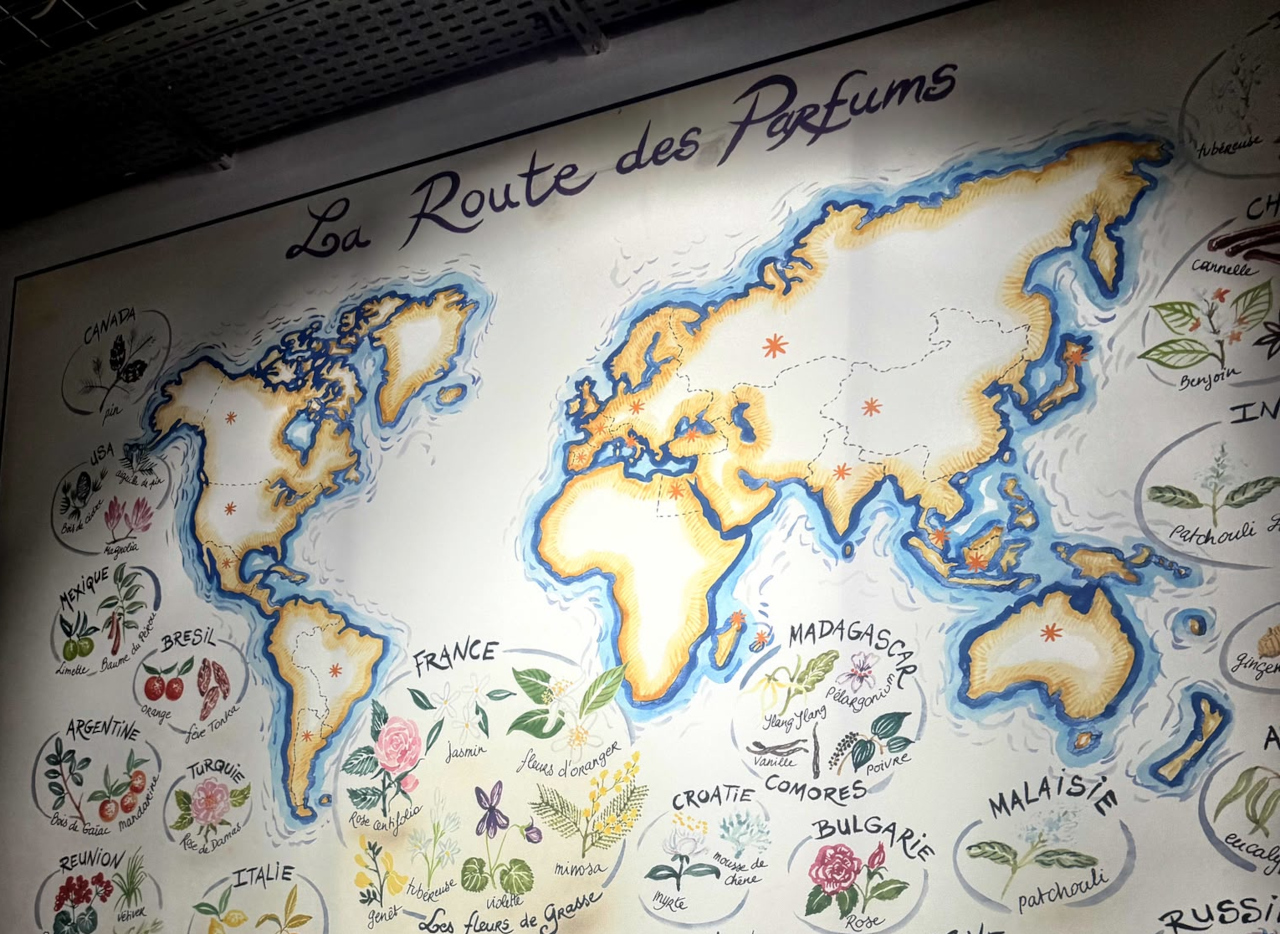 La Route des Parfums
CANADA
pin
USA
aiguille de pin
Bois de cèdre
Magnolia
MEXIQUE
Limette
Baume du Pérou
BRESIL
orange
fève Tonka
ARGENTINE
Bois de Gaïac
Mandarine
TURQUIE
Rose de Damas
REUNION
Vétiver
ITALIE
FRANCE
Jasmin
fleurs d'oranger
Rose Centifolia
genêt
tubéreuse
violette
mimosa
Les fleurs de Grasse
MADAGASCAR
Ylang Ylang
Pélargonium
Vanille
Poivre
COMORES
CROATIE
myrte
mousse de
chêne
BULGARIE
Rose
MALAISIE
patchouli
tubéreuse
CH
Cannelle
Benjoin
IN
Patchouli
ginger
A
eucaly
RUSSI